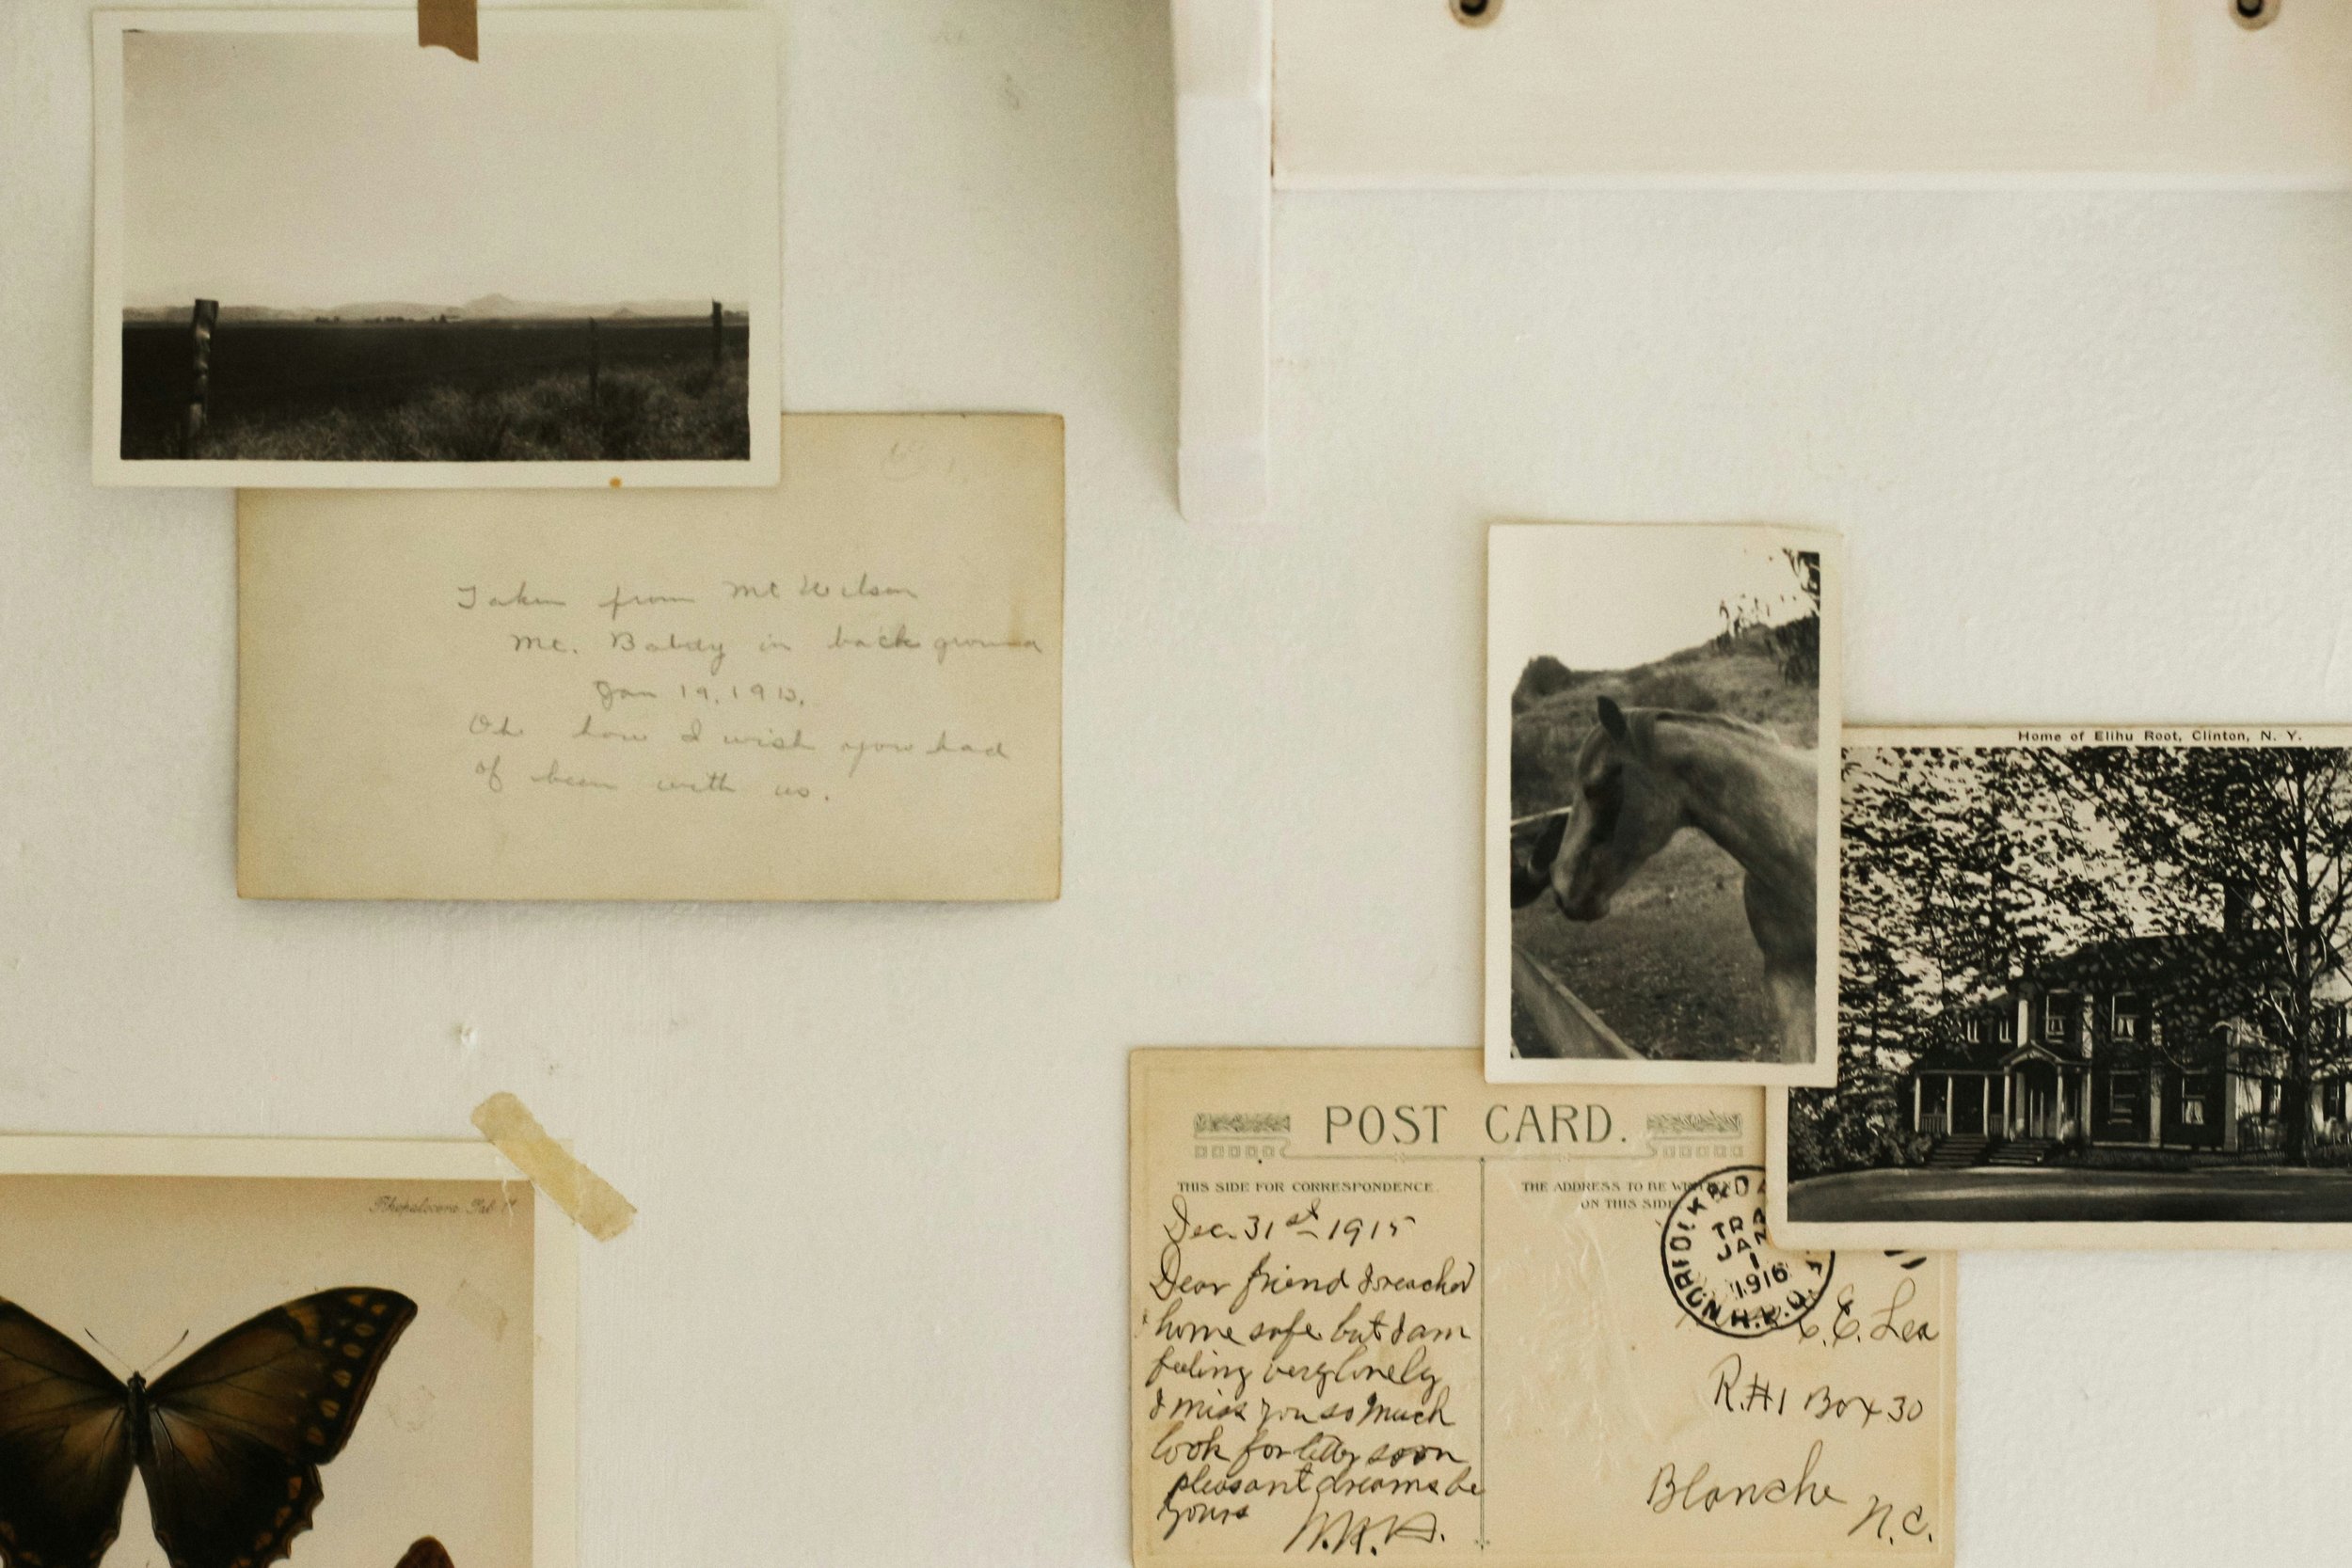 Taken from Mt Wilson
Mt. Baldy in back ground
Jan 19, 1913.
Oh how I wish you had
of been with us.
Home of Elihu Root, Clinton, N. Y.
POST CARD.
THIS SIDE FOR CORRESPONDENCE.
THE ADDRESS TO BE
ON THIS SIDE
Dec. 31st 1915
Dear friend I reached
home safe but I am
feeling very lonely
I miss you so much
look for letter soon
pleasant dreams be
yours
JAN
1
1916
C. E. Lea
R.#1 Box 30
Blanche
N.C.
Rhopalocera Tab